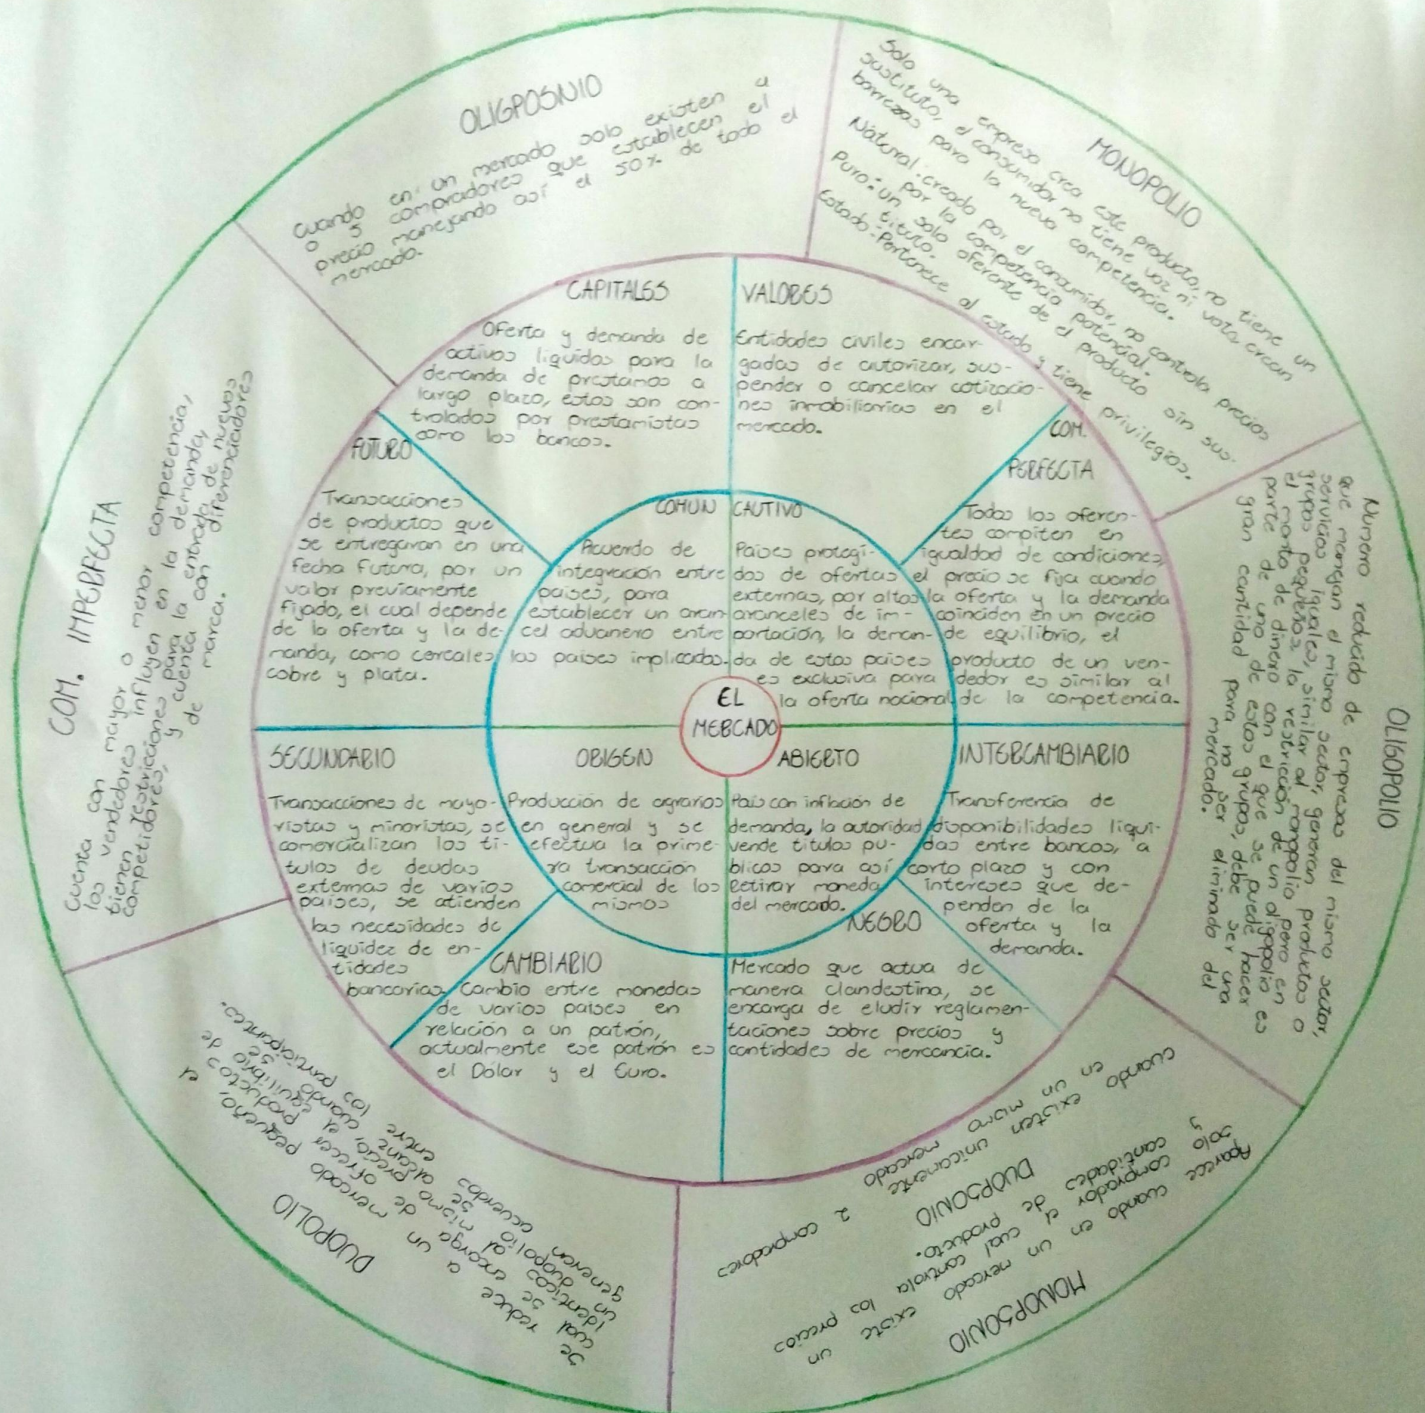 EL
MERCADO
COMUN
Acuerdo de
integración entre
países, para
establecer un aran-
cel aduanero entre
los países implicados.
CAUTIVO
Países protegi-
dos de ofertas
externas, por altos
aranceles de im-
portación, la deman-
da de estos países
es exclusiva para
la oferta nacional
ABIERTO
País con inflación de
demanda, la autoridad
vende títulos pu-
blicos para así
Retirar moneda
del mercado.
ORIGEN
Producción de agrarios
en general y se
efectua la prime-
ra transacción
comercial de los
mismos
CAPITALES
Oferta y demanda de
activos liquidos para la
demanda de prestamos a
largo plazo, estos son con-
trolados por prestamistas
como los bancos.
VALORES
Entidades civiles encar-
gadas de autorizar, sus-
pender o cancelar cotizacio-
nes inmobiliarias en el
mercado.
COM.
PERFECTA
Todos los oferen-
tes compiten en
igualdad de condiciones,
el precio se fija cuando
la oferta y la demanda
coinciden en un precio
de equilibrio, el
producto de un ven-
dedor es similar al
de la competencia.
INTERCAMBIARIO
Transferencia de
disponibilidades liqui-
das entre bancos, a
corto plazo y con
intereses que de-
penden de la
oferta y la
demanda.
NEGRO
Mercado que actua de
manera clandestina, se
encarga de eludir reglamen-
taciones sobre precios y
cantidades de mercancia.
CAMBIARIO
Cambio entre monedas
de varios países en
relación a un patrón,
actualmente ese patrón es
el Dólar y el Euro.
SECUNDARIO
Transacciones de mayo-
ristas y minoristas, se
comercializan los tí-
tulos de deudas
externas de varios
países, se atienden
las necesidades de
liquidez de en-
tidades
bancarias.
FUTURO
Transacciones
de productos que
se entregaran en una
fecha futura, por un
valor previamente
fijado, el cual depende
de la oferta y la de-
manda, como cereales
cobre y plata.
OLIGPOSNIO
Cuando en un mercado solo existen a
o 5 compradores que establecen el
precio manejando así el 50% de todo el
mercado.
MONOPOLIO
Solo una empresa crea este producto, no tiene un
sustituto, el consumidor no tiene voz ni voto, crean
barreras para la nueva competencia.
Natural: creado por el consumidor, no controla precios
por la competencia potencial.
Puro: un solo oferente de el producto sin sus-
tituto.
Estado: Pertenece al estado y tiene privilegios.
OLIGOPOLIO
Numero reducido de empresas del mismo sector,
que manejan el mismo sector, generan productos o
servicios iguales, similar al monopolio pero en
grupos pequeños, la restricción de un oligopolio es
el monto de dinero con el que se puede hacer
parte de uno de estos grupos, debe ser una
gran cantidad para no ser eliminado del
mercado.
MONOPSONIO
Aparece cuando en un mercado existe un
solo comprador el cual controla los precios
y cantidades de producto.
DUOPSONIO
cuando existen unicamente 2 compradores
en un mismo mercado
DUOPOLIO
Se reduce a un mercado pequeño, el
cual se encarga de ofrecer productos
identicos al mismo precio, el equilibrio de
un duopolio se alcanza cuando se
generan acuerdos entre los participantes.
COM. IMPERFECTA
Cuenta con mayor o menor competencia,
los vendedores influyen en la demanda,
tienen restricciones para la entrada de nuevos
competidores, y cuenta con diferenciadores
de marca.